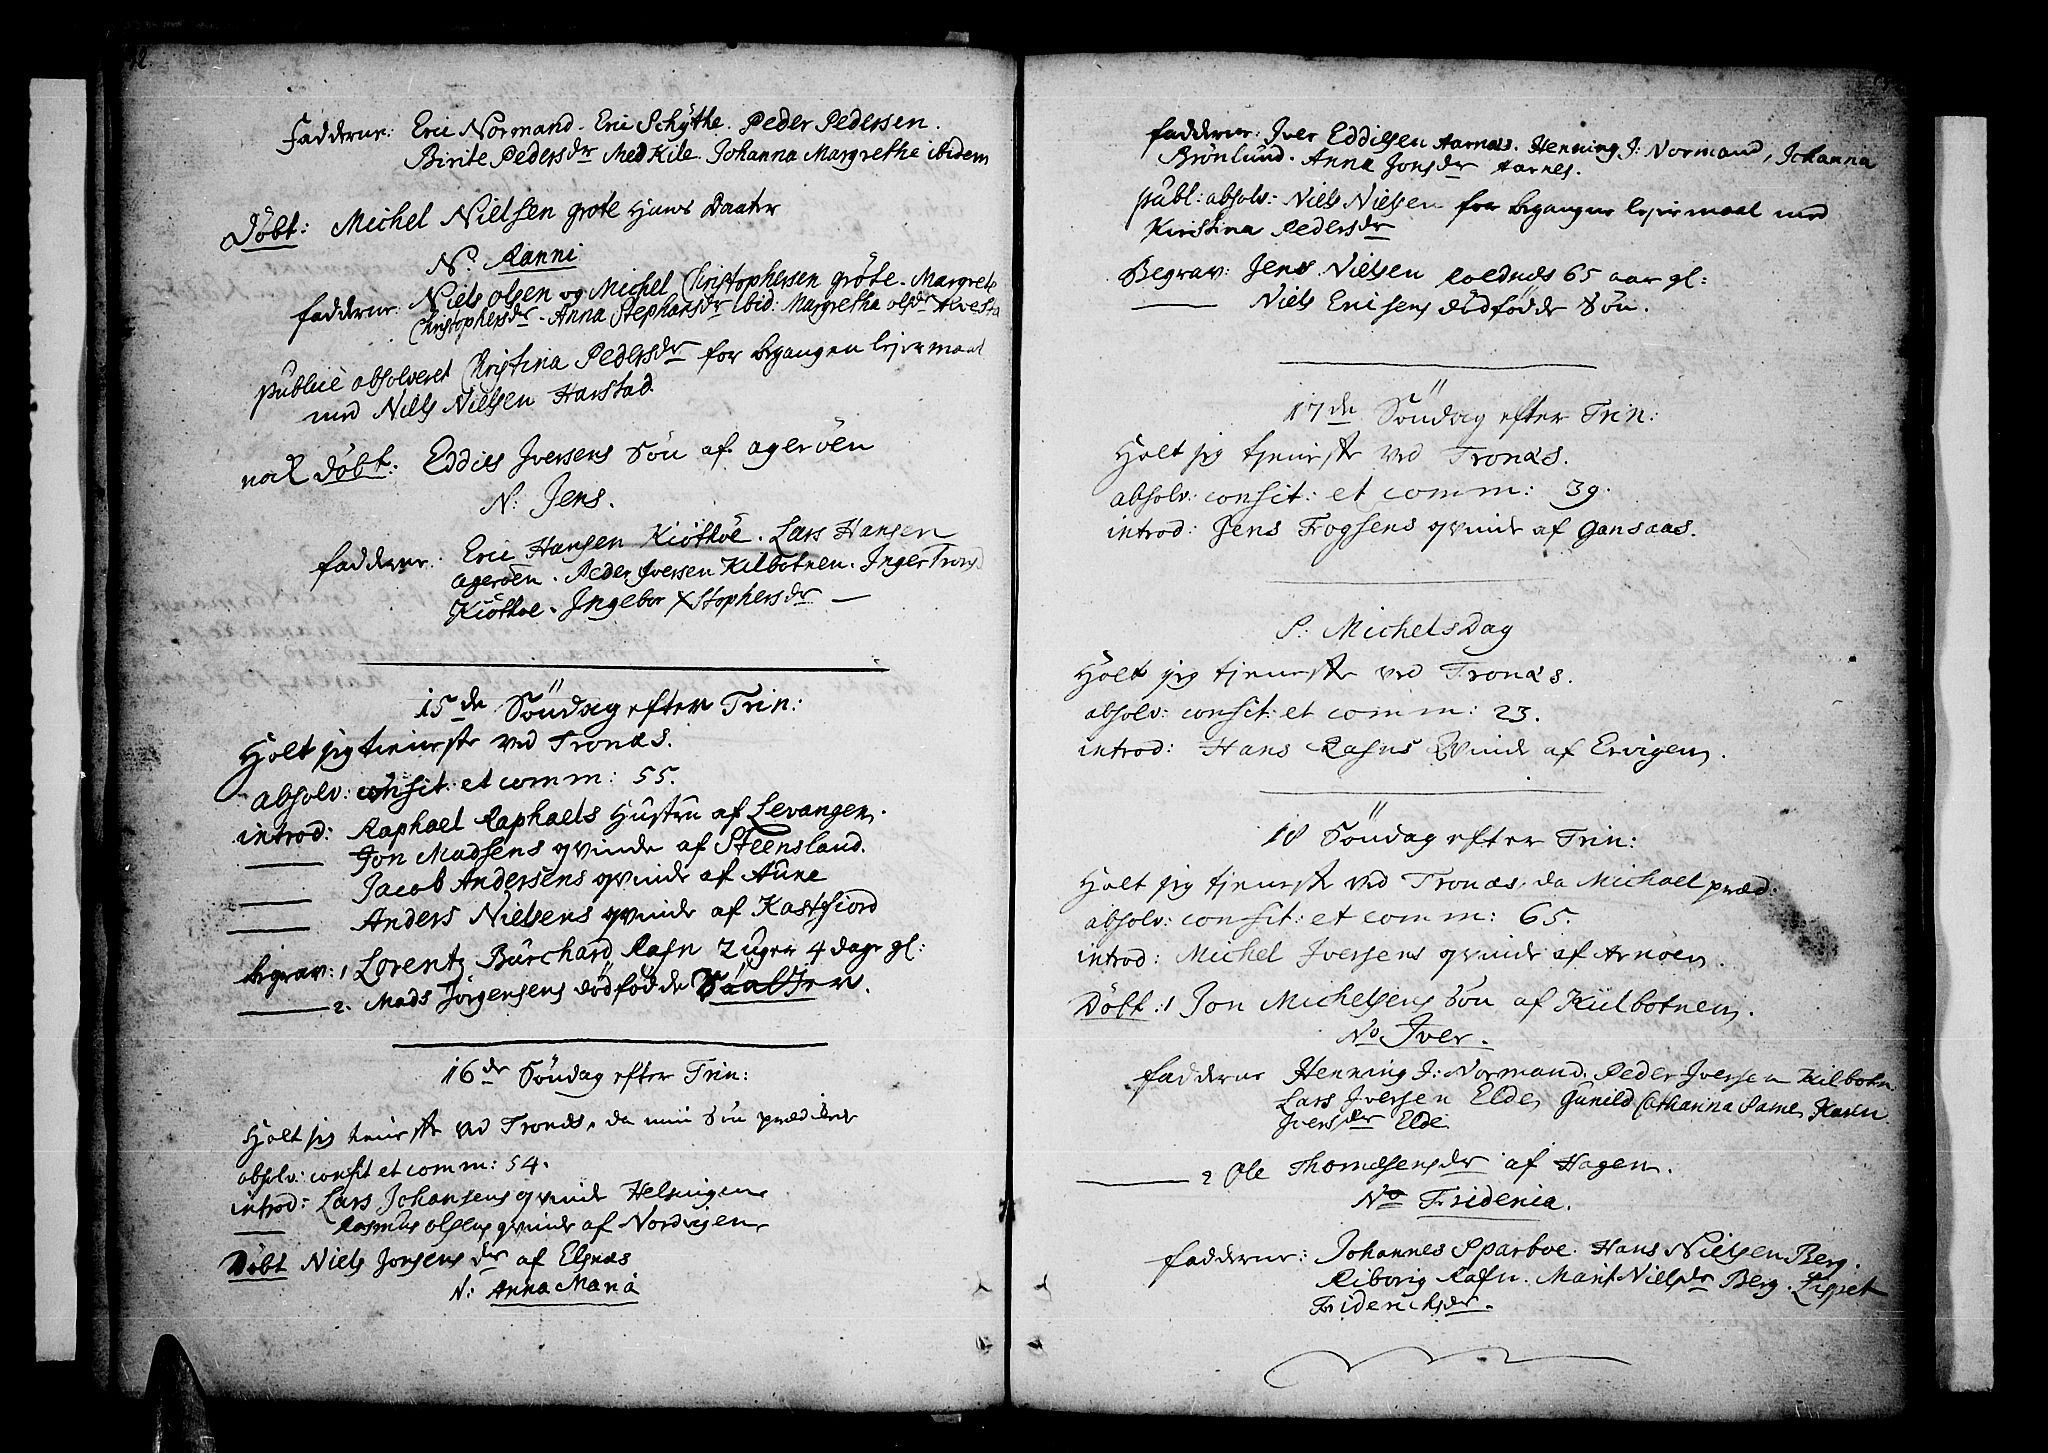 Fadderne: Eric Normand. Eric Schÿthe. Peder Pedersen.
Birite Pedersdr MedKile. Johanna Margrethe ibidem
Döbt: Michel Nielsen grøte Hans Daater
N. Ranni
fadderne: Niels olsen og Michel Christophersen gröte. Margrete
Christophersdr. Anna Stephansdr ibid: Margretha olsdr
publicè absolveret Christina Pedersdr for begangen lejermaal
med Niels Nielsen Harstad.
nock Döbt: Eddies Jversens Sön af ageröen
N: Jens.
fadderne: Eric Hansen Kiöthöe. Lars Hansen
agerøen. Peder Jversen Kilbotnen. Jnger Trons
Kiöthoe. Jngebor Xstophersdr —
15de Söndag efter Trin:
Holt jeg tieneste ved Tronæs.
absolv: confit: et comm: 55.
introd: Raphael Raphaels Hustru af Levangen.
—— Jon Madsens qvinde af Steensland.
—— Jacob Andersens qvinde af Aune
—— Anders Nielsens qvinde af Kastfiord
begrav: 1 Lorentz Burchard Rafn 2 uger 4 dage gl:
—— 2. Mads Jörgensens dödfödde
16de Söndag efter Trin:
Holt jeg tieneste ved Tronæs, da min Sön prædikede
absolv: confit et comm: 54.
introd: Lars Johansens qvinde Helsingen
—— Rasmus olsens qvinde af Nordvigen
Döbt Niels Jonsens dr af Elsnæs
N: Anna Maria
fadderne: Jver Eddissen Aarnæs. Henning J: Normand, Johanna
Brönlund. Anna Jonsdr Aarnes.
publ: absolv: Niels Nielsen for begangne lejermaal med
Kirstina Pedersdr
Begrav: Jens Nielsen 65 aar gl:
—— Niels Ericsens dödfödde Sön.
17de Söndag efter Trin:
Holt jeg tieneste ved Tronæs.
absolv: confit: et comm: 39.
introd: Jens Frogsens qvinde af Gansaas.
S: MichelsDag
Holt jeg tieneste ved Tronæs.
absolv: confit: et comm: 23.
introd: Hans Rafns Qvinde af Ervigen.
18 Söndag efter Trin:
Holt jeg tieneste ved Tronæs, da Michael præd:
absolv: confit: et comm: 65.
introd: Michel Jversens qvinde af Arnöen.
Döbt: 1 Jon Michelsens Sön af Kiilbotnen.
No Jver.
fadderne Henning J: Normand. Peder Jversen Kilbotn
Lars Jversen Elde, Gunild Catharina Karen
Jversdr Elde.
—— 2 Ole Thomæsens dr af Hagen.
No Fridenia.
fadderne: Johannes Sparboe. Hans Nielsen Berg.
Riborig Rafn. Marit Nielsdr Berg. Lispet
Friderichsdr.